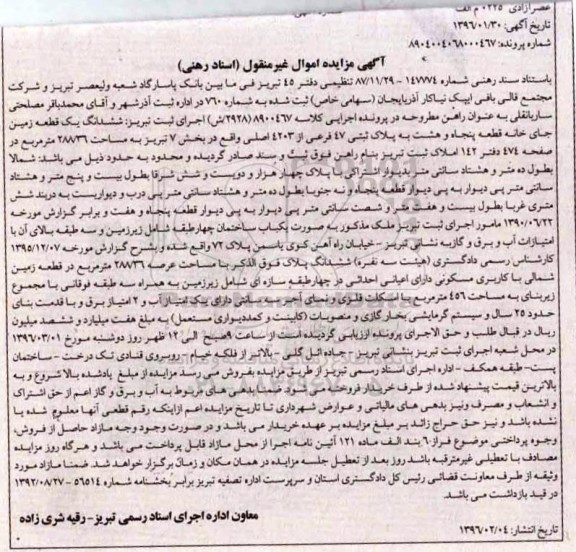 عصرازادی ۰۲۲۵ م الف
تاریخ آگهی: ۱۳۹۶/۰۱/۳۰
شماره پرونده: ۸۹۰۴۰۰۴۰۶۸۰۰۰۴۶۷
آگهی مزایده اموال غیرمنقول (اسناد رهنی)
باستناد سند رهنی شماره ۱۴۷۷۷۴ – ۸۷/۱۱/۲۹ تنظیمی دفتر ۴۵ تبریز فی ما بین بانک پاسارگاد شعبه ولیعصر تبریز و شرکت
مجتمع قالی بافی ایپک نیاکار آذربایجان (سهامی خاص) ثبت شده به شماره ۷۶۰ در اداره ثبت آذرشهر و آقای محمدباقر مصلحتی
ساربانقلی به عنوان راهن مطروحه در پرونده اجرایی کلاسه ۸۹۰۰۴۶۷ (۲۹۲۸/ش) اجرای ثبت تبریز: ششدانگ یک قطعه زمین
جای خانه قطعه پنجاه و هشت به پلاک ثبتی ۴۷ فرعی از ۴۲۰۳ اصلی واقع در بخش ۷ تبریز به مساحت ۲۸۸/۳۶ مترمربع در
صفحه ۴۷۴ دفتر ۱۴۲ املاک ثبت تبریز بنام راهن فوق ثبت و سند صادر گردیده و محدود به حدود ذیل می باشد: شمالا
بطول ده متر و هشتاد سانتی متر بدیوار اشتراکی با پلاک چهار هزار و دویست و شش شرقا بطول بیست و پنج متر و هشتاد
سانتی متر پی دیوار به پی دیوار قطعه پنجاه و نه جنوبا بطول ده متر و هشتاد سانتی متر پی درب و دیواریست به دربند شش
متری غربا بطول بیست و هفت متر و شصت سانتی متر پی دیوار به پی دیوار قطعه پنجاه و هفت و برابر گزارش مورخه
۱۳۹۰/۰۶/۲۲ مامور اجرای ثبت تبریز ملک مذکور به صورت یکباب ساختمان چهارطبقه شامل زیرزمین و سه طبقه بالای آن با
امتیازات آب و برق و گازبه نشانی تبریز – خیابان راه آهن کوی یاسمن پلاک ۷۲ واقع شده و بشرح گزارش مورخه ۱۳۹۵/۱۲/۰۷
کارشناس رسمی دادگستری (هیئت سه نفره) ششدانگ پلاک فوق الذکر با مساحت عرصه ۲۸۸/۳۶ مترمربع در قطعه زمین
شمالی با کاربری مسکونی دارای اعیانی احداثی در چهارطبقه سازه ای شامل زیرزمین به همراه سه طبقه فوقانی با مجموع
زیربنای به مساحت ۴۵۶ مترمربع با اسکلت فلزی و نمای آجر به سانتی دارای یک امتیاز آب و ۲ امتیاز برق و با قدمت بنای
حدود ۲۵ سال و سیستم گرمایشی بخار گازی و منصوبات (کابینت و کمددیواری مستعمل) به مبلغ هفت میلیارد و ششصد میلیون
ریال در قبال طلب و حق الاجرای پرونده ارزیابی گردیده است از ساعت ۹صبح الی ۱۲ ظهر روز دوشنبه مورخ ۱۳۹۶/۰۳/۰۱
در محل شعبه اجرای ثبت تبریز بنشانی تبریز – جاده ائل گلی – بالاتر از فلکه خیام – روبروی قنادی تک درخت – ساختمان
پست- طبقه همکف – اداره اجرای اسناد رسمی تبریز از طریق مزایده بفروش می رسد مزایده از مبلغ یادشده بالا شروع و به
بالاترین قیمت پیشنهاد شده از طرف خریدار فروخته می شود ضمنا بدهی های مربوط به آب و برق و گاز اعم از حق اشتراک
و انشعاب و مصرف ونیز بدهی های مالیاتی و عوارض شهرداری تا تاریخ مزایده اعم ازاینکه رقم قطعی آنها معلوم شده یا
نشده باشد و نیز حق حراج زائد بر مبلغ مزایده بر عهده خریدار می باشد و در صورت وجود وجه مازاد حاصل از فروش،
وجوه پرداختی موضوع فراز ۶ بند الف ماده ۱۲۱ آئین نامه اجرا از محل مازاد قابل پرداخت می باشد و هرگاه روز مزایده
مصادف با تعطیلی غیرمترقبه باشد روز بعد از تعطیل جلسه مزایده در همان مکان و زمان برگزار خواهد شد. ضمنا مازاد مورد
وثیقه از طرف معاونت قضائی رئیس کل دادگستری استان و سرپرست اداره تصفیه تبریز برابر بخشنامه شماره ۵۶۵۱۴ – ۱۳۹۲/۰۸/۲۷
در قید بازداشت می باشد.
معاون اداره اجرای اسناد رسمی تبریز- رقیه شری زاده
تاریخ انتشار: ۱۳۹۶/۰۲/۰۴